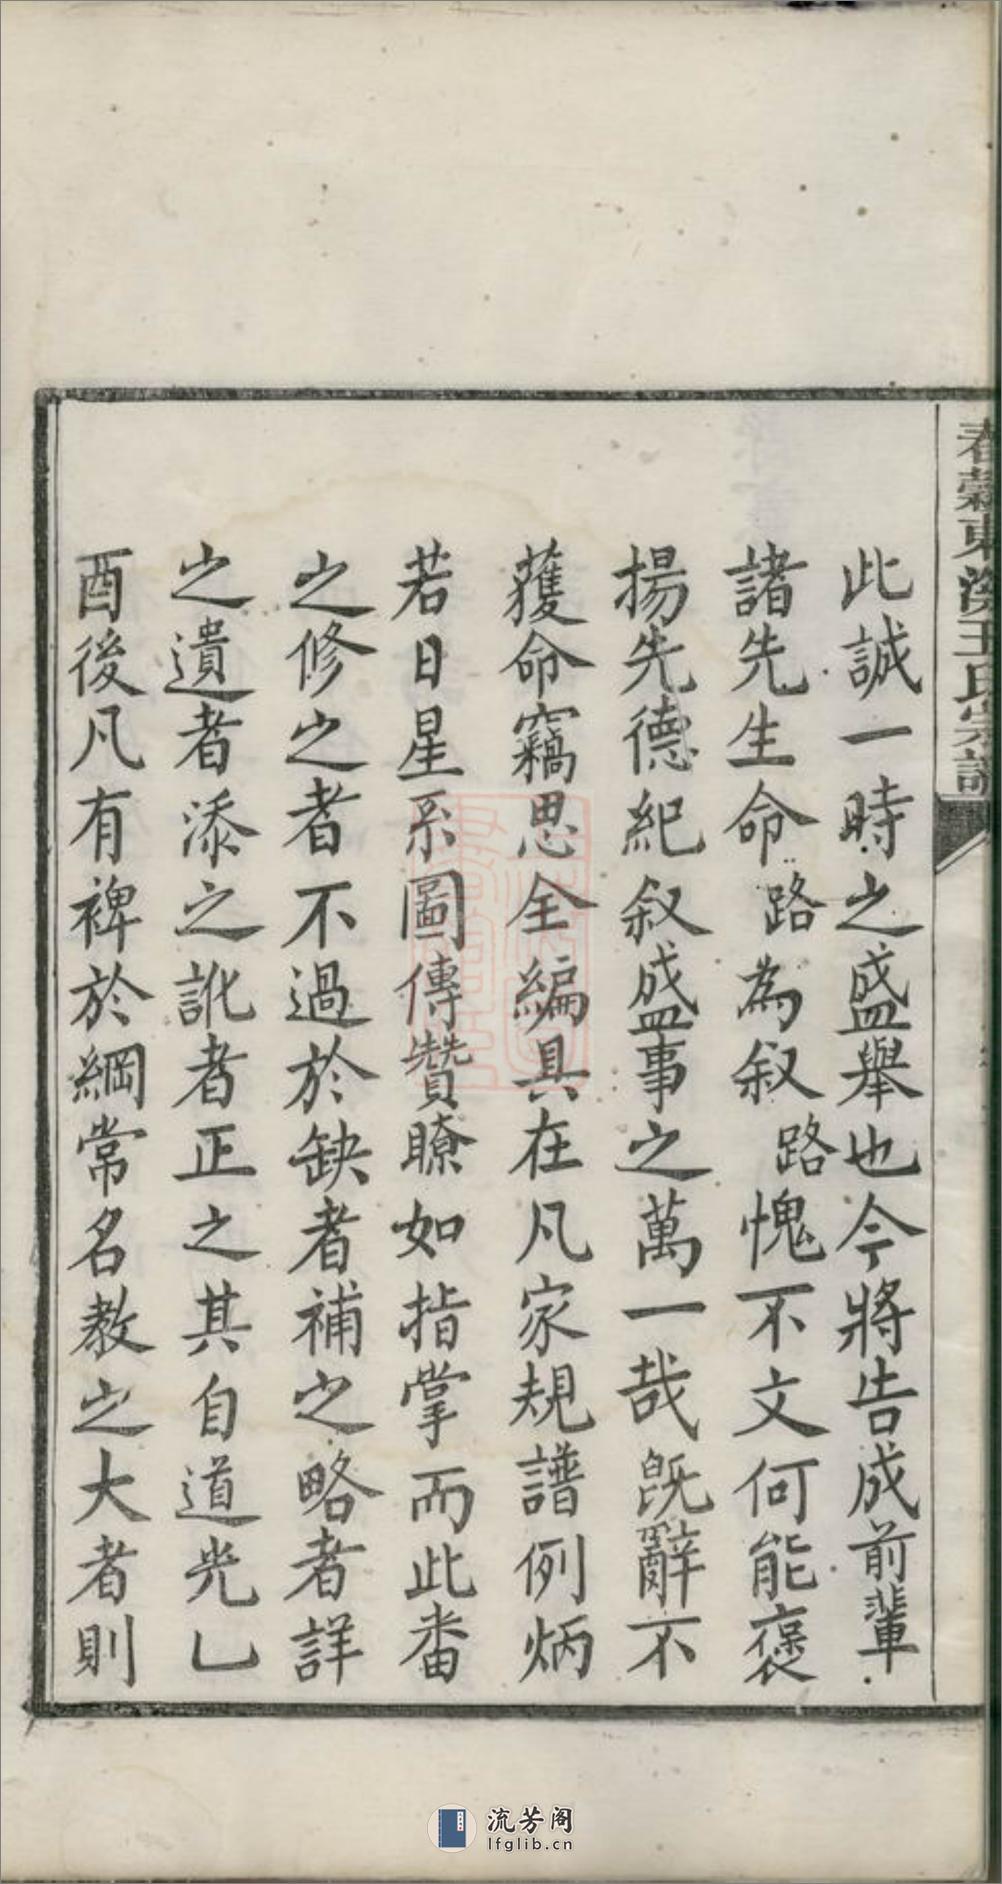 春穀東溪王氏宗譜
此誠一時之盛舉也今將告成前輩
諸先生命路為叙路愧不文何能褒
揚先德紀叙盛事之萬一哉旣辭不
獲命竊思全編具在凡家規譜例炳
若日星系圖傳贊瞭如指掌而此畨
之修之者不過於缺者補之略者詳
之遺者添之訛者正之其自道光乚
酉後凡有裨於綱常名教之大者則
流芳阁
lfglib.cn